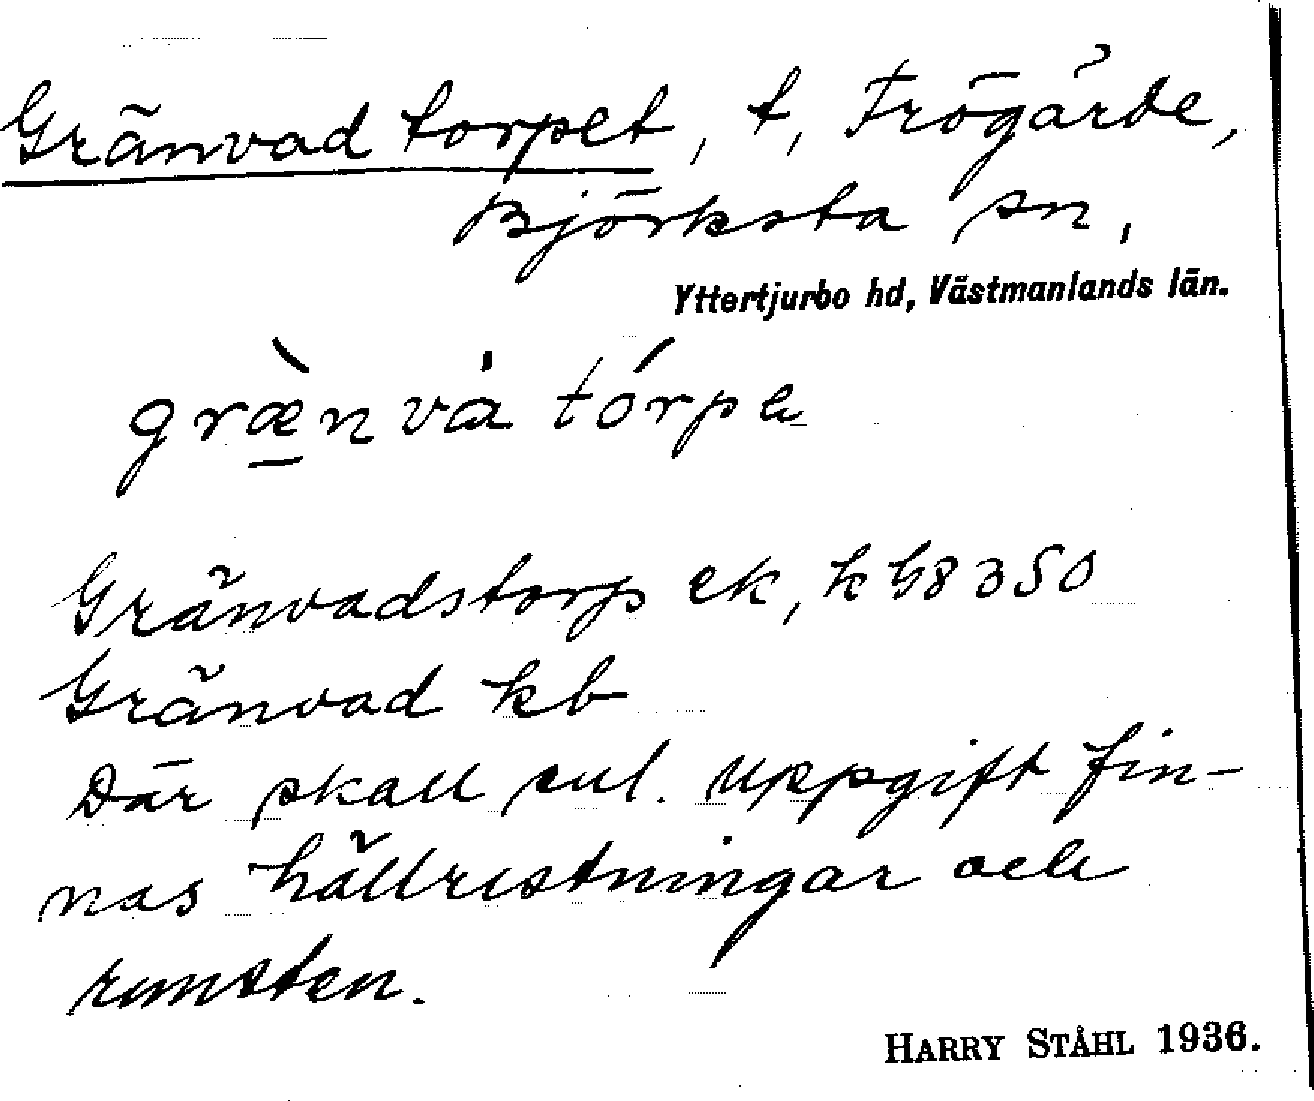 Gränvadtorpet, t, Frögärde,
Björksta sn,
Yttertjurbo hd, Västmanlands län.
græ̀nvà tórpe
Gränvadstorp ek, k G8350
Gränvad kb
Där skall enl. uppgift fin-
nas hällristningar och
runsten.
HARRY STÅHL 1936.